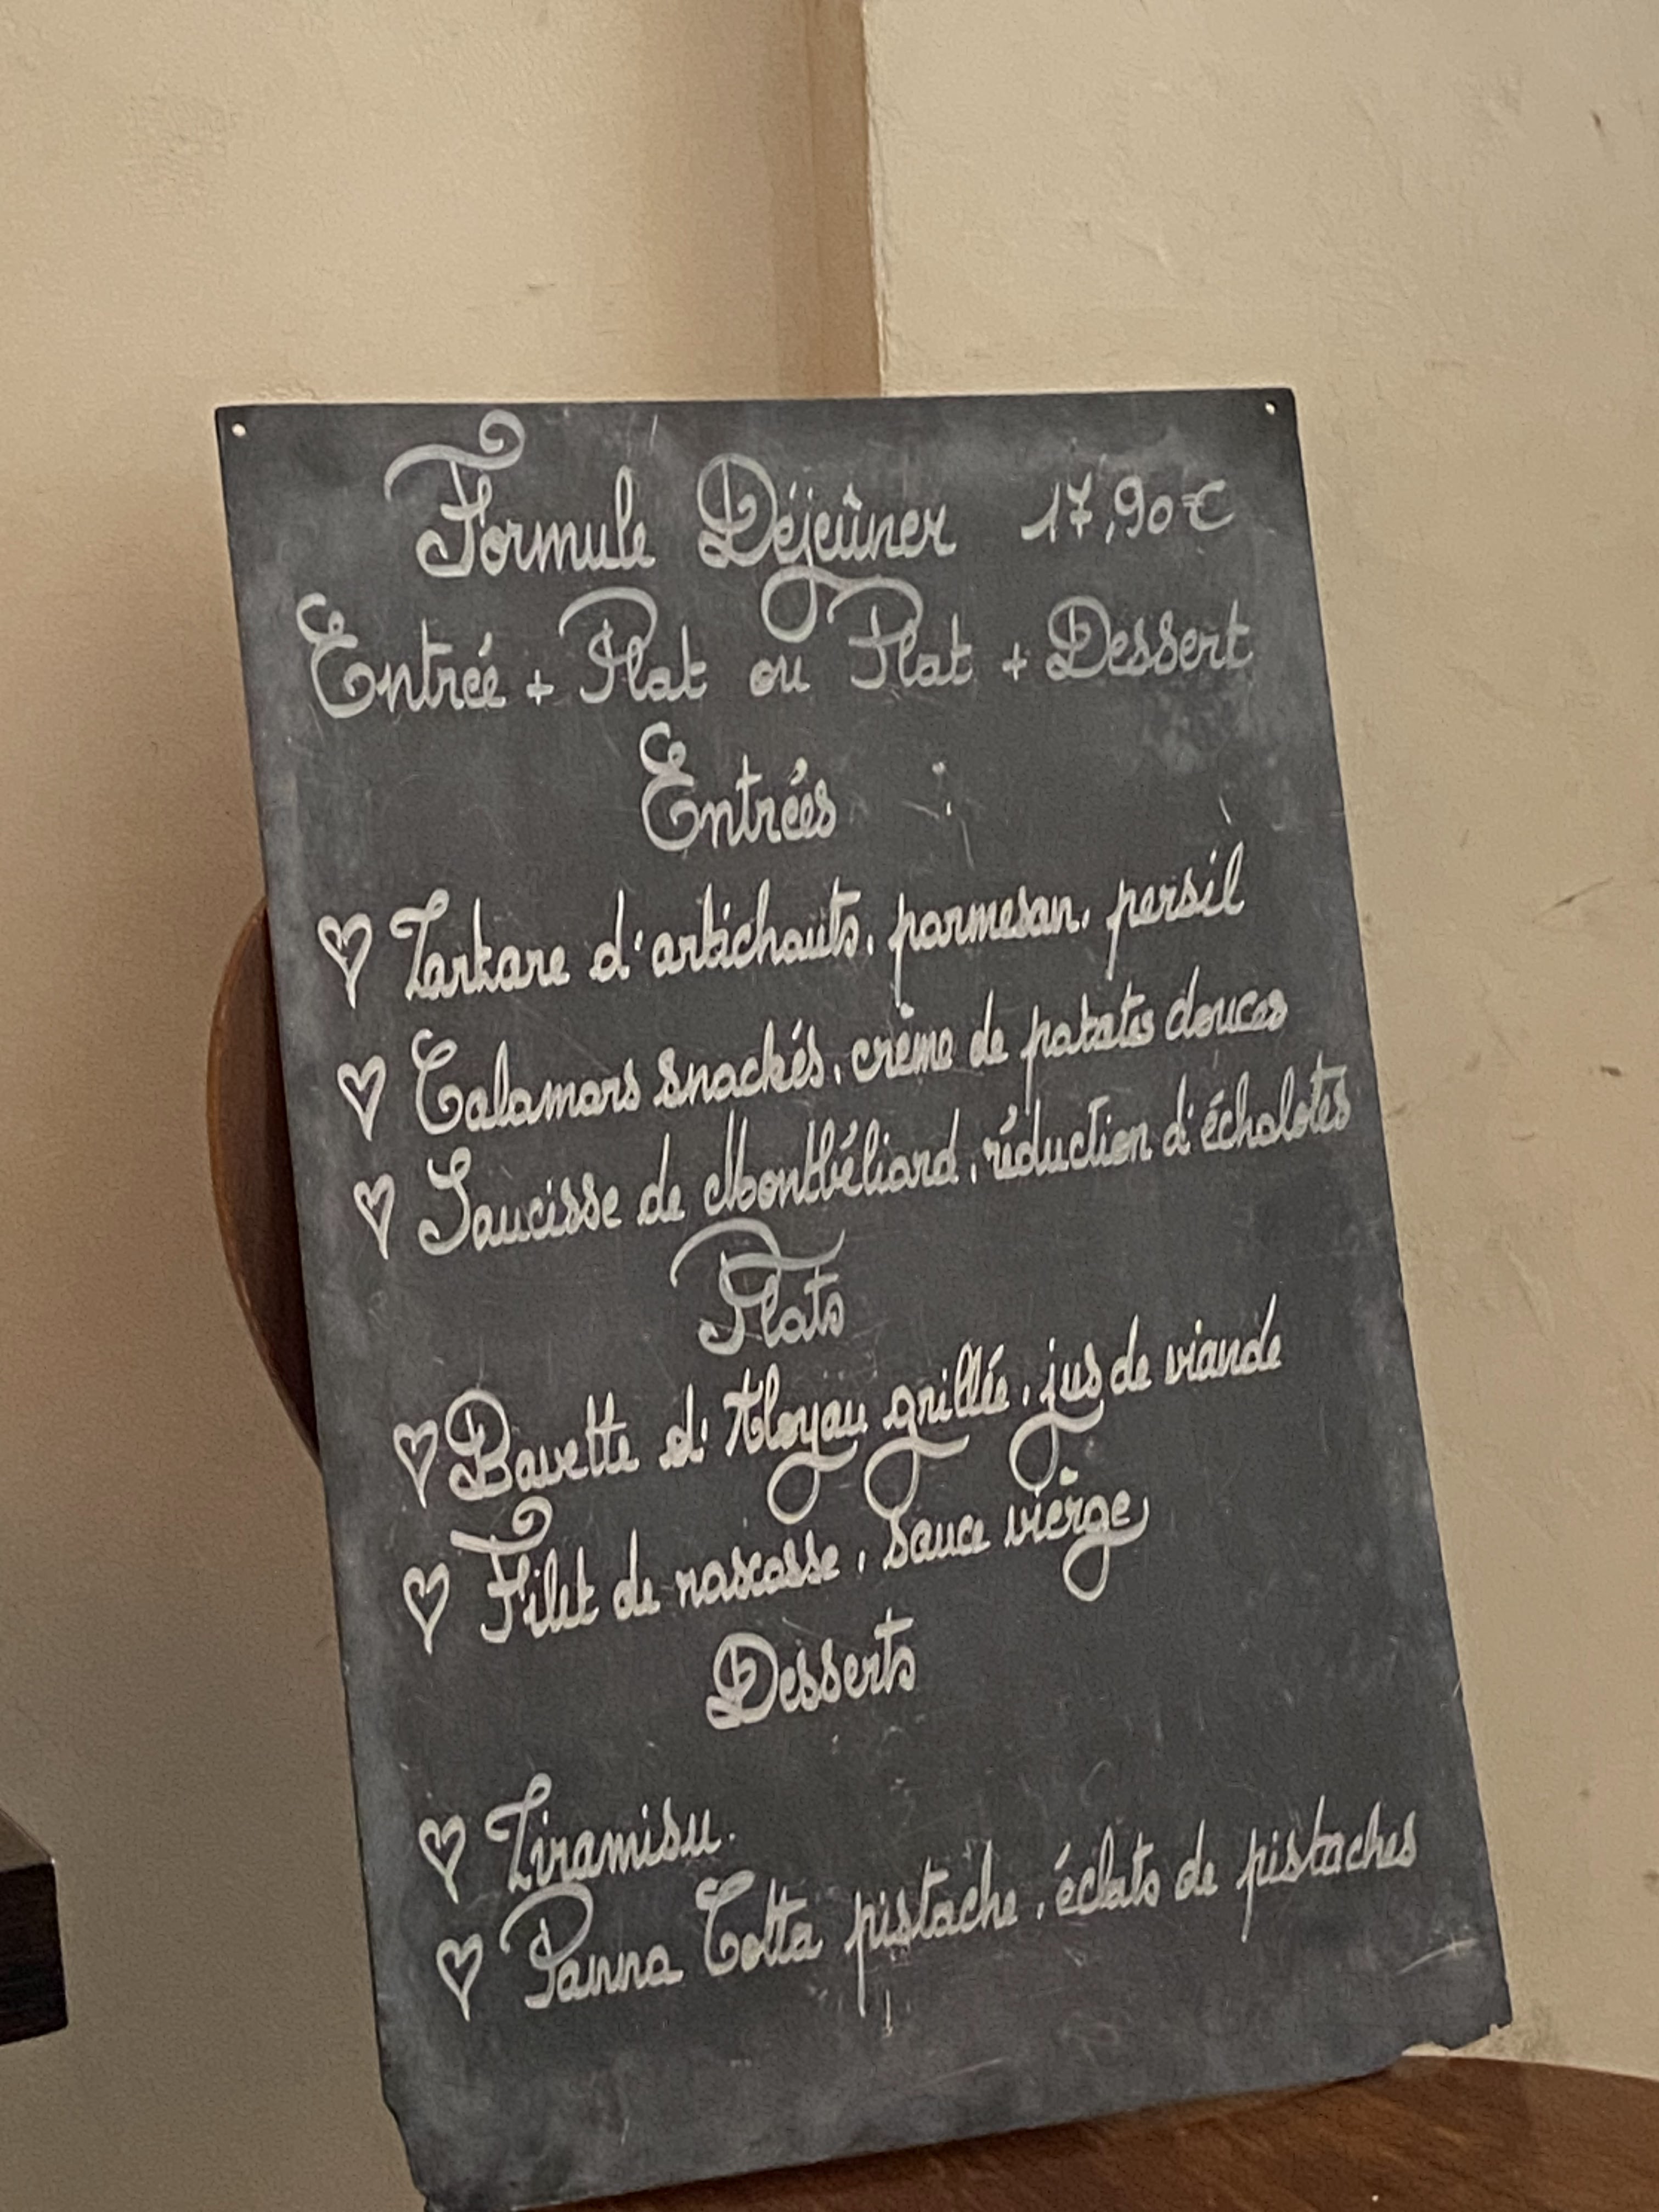 Formule Déjeûner 17,90€
Entrée + Plat ou Plat + Dessert
Entrées
♡ Tartare d'artichauts, parmesan, persil
♡ Calamars snackés, crème de patates douces
♡ Saucisse de Montbéliard, réduction d'échalotes
Plats
♡ Bavette d'Aloyau grillée, jus de viande
♡ Filet de rascasse, sauce vierge
Desserts
♡ Tiramisu.
♡ Panna Cotta pistache, éclats de pistaches